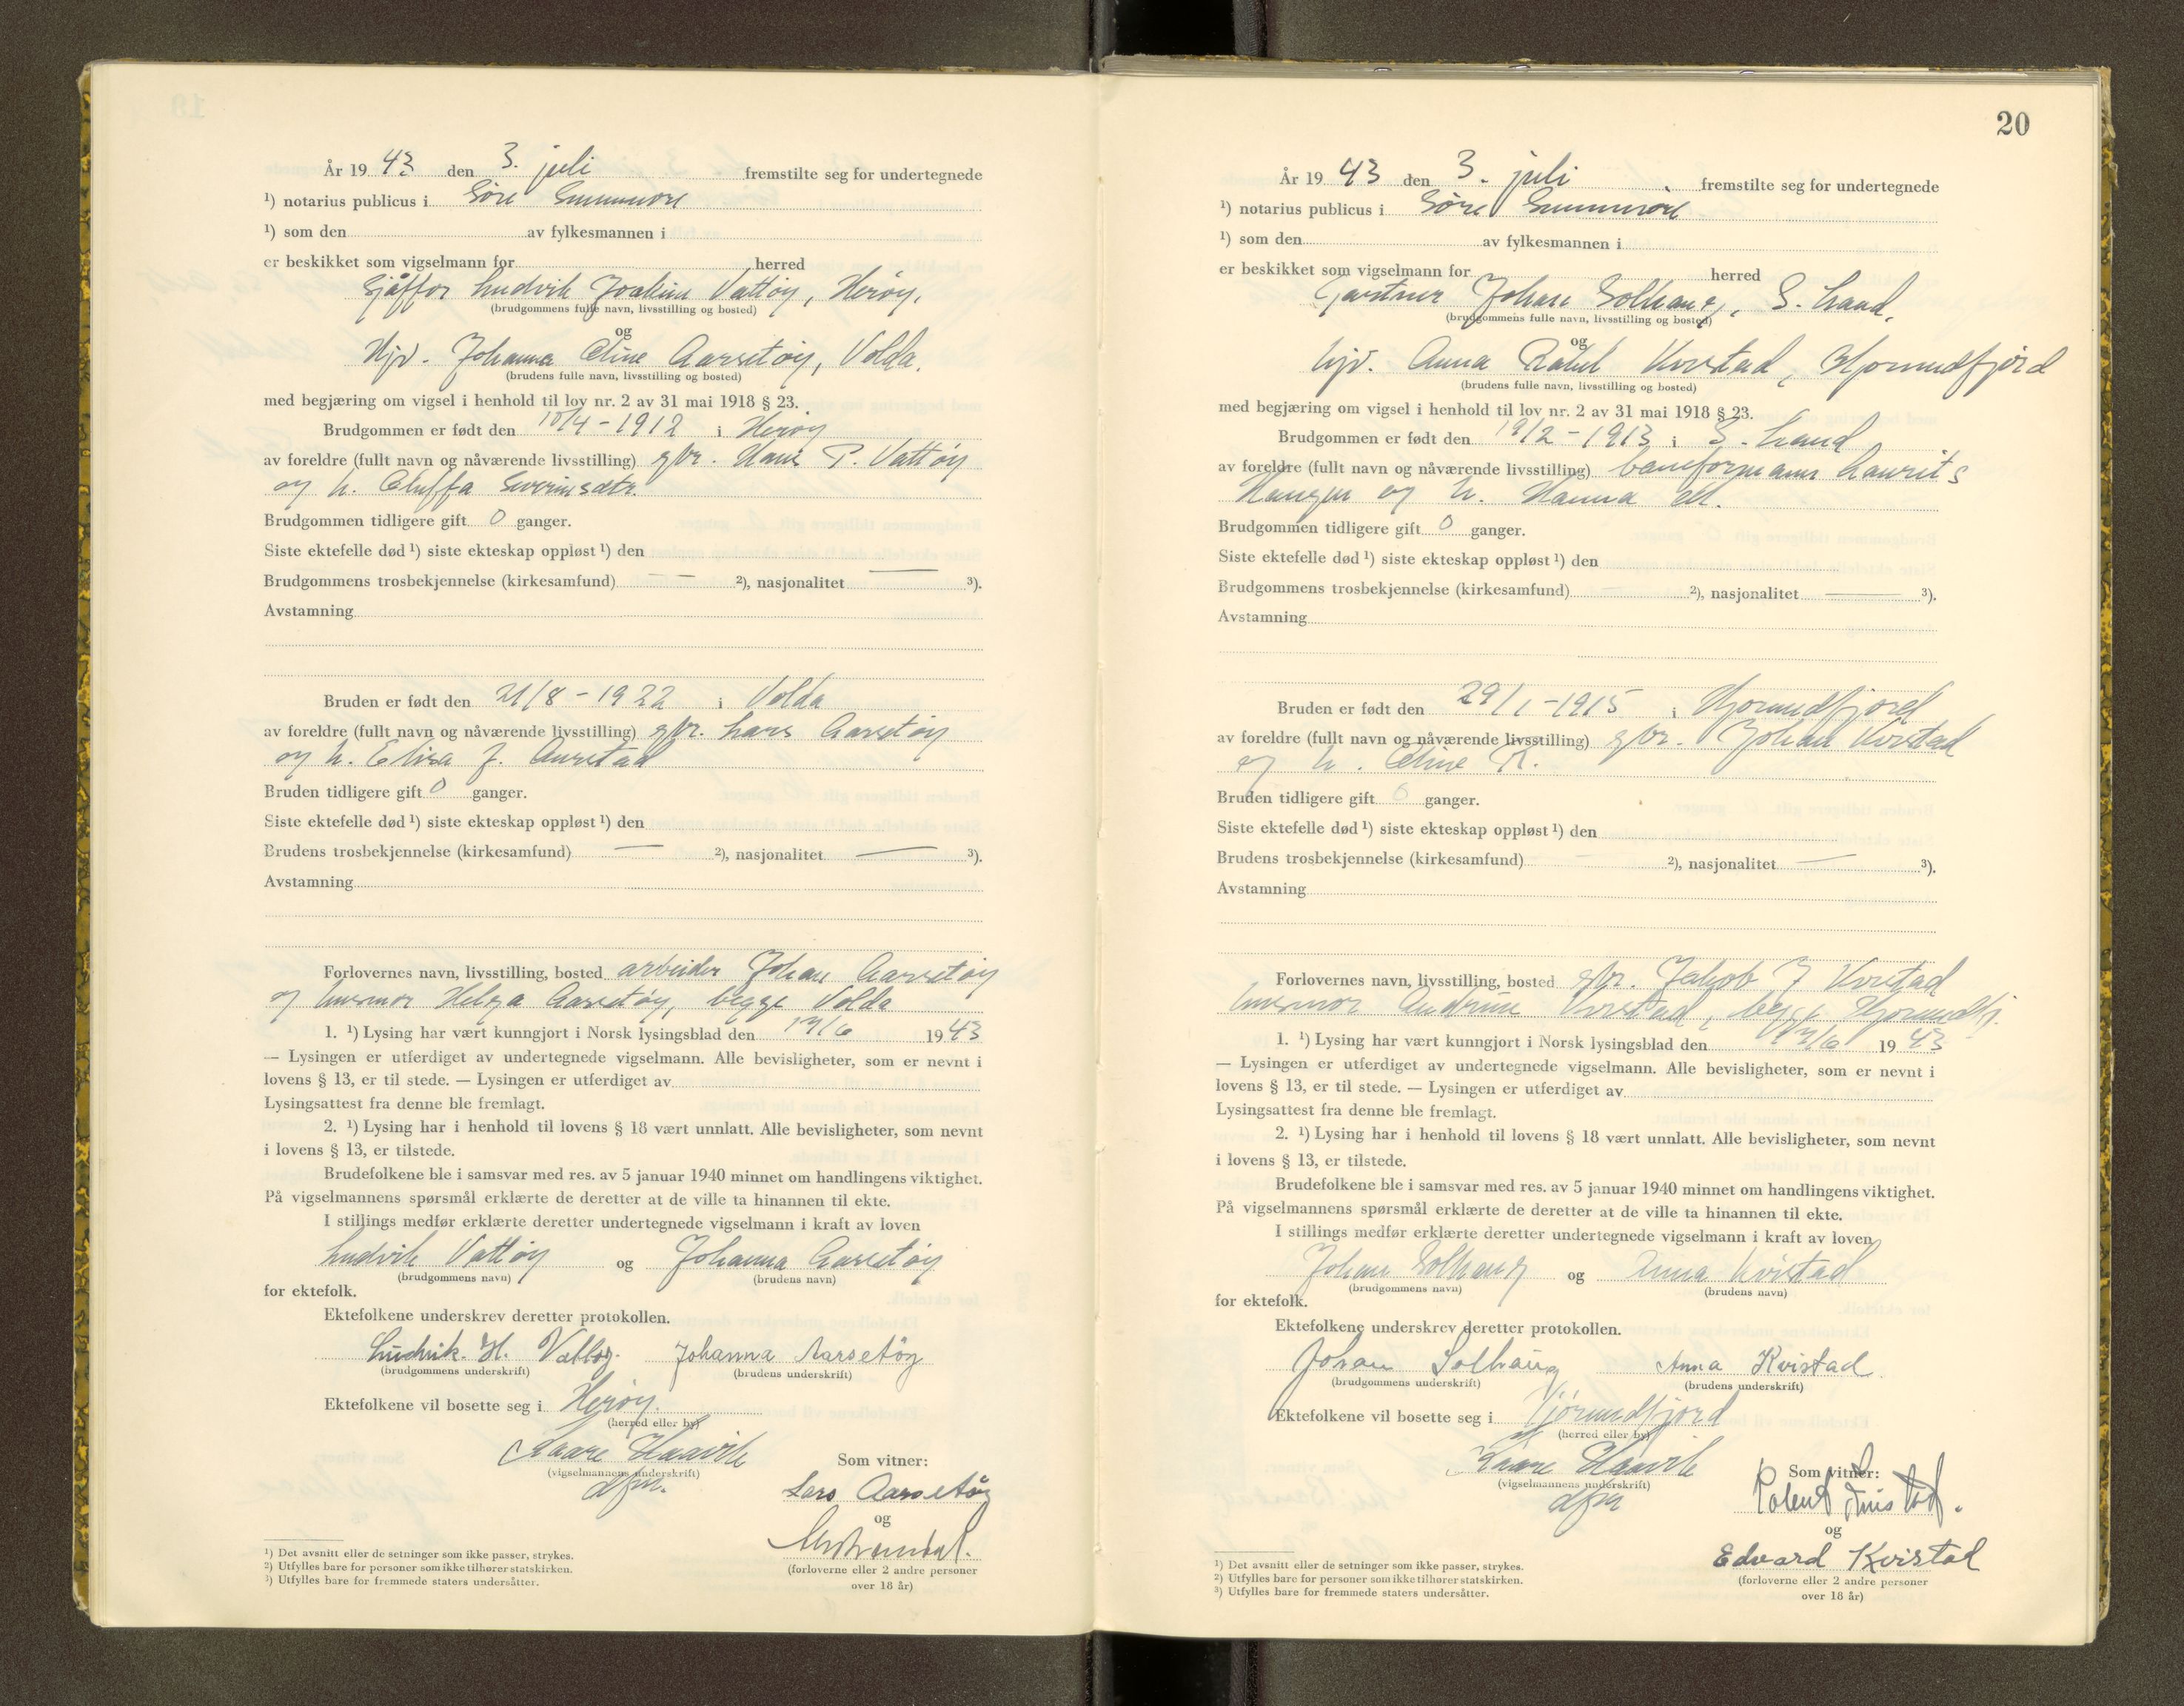 År 19 43 den 3. juli fremstilte seg for undertegnede
¹) notarius publicus i Søre Sunnmøre
¹) som den av fylkesmannen i
er beskikket som vigselmann for herred
Sjåffør Ludvik Joakim Vattøy, Herøy,
(brudgommens fulle navn, livsstilling og bosted)
og
Hjv. Johanna Oline Aarsetøy, Volda.
(brudens fulle navn, livsstilling og bosted)
med begjæring om vigsel i henhold til lov nr. 2 av 31 mai 1918 § 23.
Brudgommen er født den 10/4 - 1912 i Herøy
av foreldre (fullt navn og nåværende livsstilling) gbr. Hans P. Vattøy
og h. Oluffa Severinsdtr.
Brudgommen tidligere gift 0 ganger.
Siste ektefelle død ¹) siste ekteskap oppløst ¹) den
Brudgommens trosbekjennelse (kirkesamfund) — — ²), nasjonalitet — ³).
Avstamning
Bruden er født den 21/8 - 1922 i Volda
av foreldre (fullt navn og nåværende livsstilling) gbr. Lars Aarsetøy
og h. Elisa J. Aurstad
Bruden tidligere gift 0 ganger.
Siste ektefelle død ¹) siste ekteskap oppløst ¹) den
Brudens trosbekjennelse (kirkesamfund) — ²), nasjonalitet — ³).
Avstamning
Forlovernes navn, livsstilling, bosted arbeider Johan Aarsetøy
og husmor Helga Aarsetøy, begge Volda
1. ¹) Lysing har vært kunngjort i Norsk lysingsblad den 17/6 19 43
— Lysingen er utferdiget av undertegnede vigselmann. Alle bevisligheter, som er nevnt i
lovens § 13, er til stede. — Lysingen er utferdiget av
Lysingsattest fra denne ble fremlagt.
2. ¹) Lysing har i henhold til lovens § 18 vært unnlatt. Alle bevisligheter, som nevnt
i lovens § 13, er tilstede.
Brudefolkene ble i samsvar med res. av 5 januar 1940 minnet om handlingens viktighet.
På vigselmannens spørsmål erklærte de deretter at de ville ta hinannen til ekte.
I stillings medfør erklærte deretter undertegnede vigselmann i kraft av loven
Ludvik Vattøy og Johanna Aarsetøy
(brudgommens navn) (brudens navn)
for ektefolk.
Ektefolkene underskrev deretter protokollen.
Ludvik. H. Vattøy. Johanna Aarsetöy
(brudgommens underskrift) (brudens underskrift)
Ektefolkene vil bosette seg i Herøy.
(herred eller by)
Kaare Haavik
(vigselmannens underskrift)
dfm.
Som vitner:
Lars Aarsetöy
og
(forloverne eller 2 andre personer
over 18 år)
¹) Det avsnitt eller de setninger som ikke passer, strykes.
²) Utfylles bare for personer som ikke tilhører statskirken.
³) Utfylles bare for fremmede staters undersåtter.
20
År 19 43 den 3. juli fremstilte seg for undertegnede
¹) notarius publicus i Søre Sunnmøre
¹) som den av fylkesmannen i
er beskikket som vigselmann for herred
Gartner Johan Solhaug, S. Land,
(brudgommens fulle navn, livsstilling og bosted)
og
hjv. Anna Rakel Kvistad, Hjorundfjord
(brudens fulle navn, livsstilling og bosted)
med begjæring om vigsel i henhold til lov nr. 2 av 31 mai 1918 § 23.
Brudgommen er født den 19/2 - 1913 i S. Land
av foreldre (fullt navn og nåværende livsstilling) baneformann Laurits
og h. Hanna
Brudgommen tidligere gift 0 ganger.
Siste ektefelle død ¹) siste ekteskap oppløst ¹) den
Brudgommens trosbekjennelse (kirkesamfund) — ²), nasjonalitet — ³).
Avstamning
Bruden er født den 29/1 - 1915 i Hjorundfjord
av foreldre (fullt navn og nåværende livsstilling) gbr. Johan Kvistad
og h. Oline R.
Bruden tidligere gift 0 ganger.
Siste ektefelle død ¹) siste ekteskap oppløst ¹) den
Brudens trosbekjennelse (kirkesamfund) — ²), nasjonalitet — ³).
Avstamning
Forlovernes navn, livsstilling, bosted gbr. Jakob J Kvistad
husmor Andrine Kvistad, begge Hjorundfj.
1. ¹) Lysing har vært kunngjort i Norsk lysingsblad den 17/6 19 43
— Lysingen er utferdiget av undertegnede vigselmann. Alle bevisligheter, som er nevnt i
lovens § 13, er til stede. — Lysingen er utferdiget av
Lysingsattest fra denne ble fremlagt.
2. ¹) Lysing har i henhold til lovens § 18 vært unnlatt. Alle bevisligheter, som nevnt
i lovens § 13, er tilstede.
Brudefolkene ble i samsvar med res. av 5 januar 1940 minnet om handlingens viktighet.
På vigselmannens spørsmål erklærte de deretter at de ville ta hinannen til ekte.
I stillings medfør erklærte deretter undertegnede vigselmann i kraft av loven
Johan Solhaug og Anna Kvistad
(brudgommens navn) (brudens navn)
for ektefolk.
Ektefolkene underskrev deretter protokollen.
Johan Solhaug Anna Kvistad
(brudgommens underskrift) (brudens underskrift)
Ektefolkene vil bosette seg i Hjörundfjord
(herred eller by)
Kaare Haavik
(vigselmannens underskrift)
dfm
Som vitner:
og
Edvard Kvistad
(forloverne eller 2 andre personer
over 18 år)
¹) Det avsnitt eller de setninger som ikke passer, strykes.
²) Utfylles bare for personer som ikke tilhører statskirken.
³) Utfylles bare for fremmede staters undersåtter.